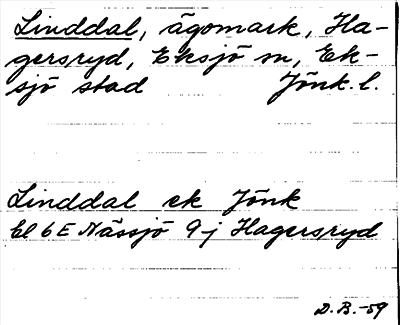 Linddal, ägomark, Ha-
gersryd, Eksjö sn, Ek-
sjö stad Jönk. l.
Linddal ek Jönk
El 6E Nässjö 9-j Hagersryd
D.B.-59